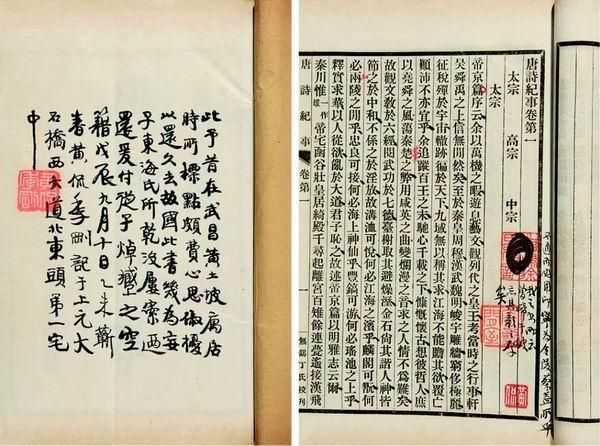 此予昔在武昌黄土坡寓居
時所標點頗費心思俶擾
以還久去故國此書幾為妄
子東海氏所乾没屬寮迺
還爰付從子焯藏之空
籍戊辰九月十日乙未蘄
春黄侃季剛記于上元大
石橋西大道北東頭第一宅
中
唐詩紀事卷第一
太宗 高宗 中宗
太宗
帝京篇序云余以萬機之暇遊息藝文觀列代之皇王考當時之行事軒
昊舜禹之上信無間然矣至於秦皇周穆漢武魏明峻宇雕牆窮侈極麗
征稅殫於宇宙轍跡徧於天下九域無以稱其求江海不能贍其欲覆亡
顛沛不亦宜乎余追蹤百王之末馳心千載之下慷慨懷古想彼哲人庶
以堯舜之風蕩秦楚之弊用咸英之曲變爛漫之音求之人情不為難矣
故觀文教於六經閱武功於七德臺榭取其避燥溼金石尙其諧人神皆
節之於中和不係之於淫放故溝洫可悅何必江海之濱乎麟閣可翫何
必兩陵之間乎忠良可接何必海上神仙乎豐鎬可遊何必瑤池之上乎
釋實求華以人從欲亂於大道君子恥之故述帝京篇以明雅志云爾
秦川惟一作雄帝宅函谷壯皇居綺殿千尋起離宮百雉餘連甍遙接漢飛
唐詩紀事 卷第一
無錫丁氏校刊